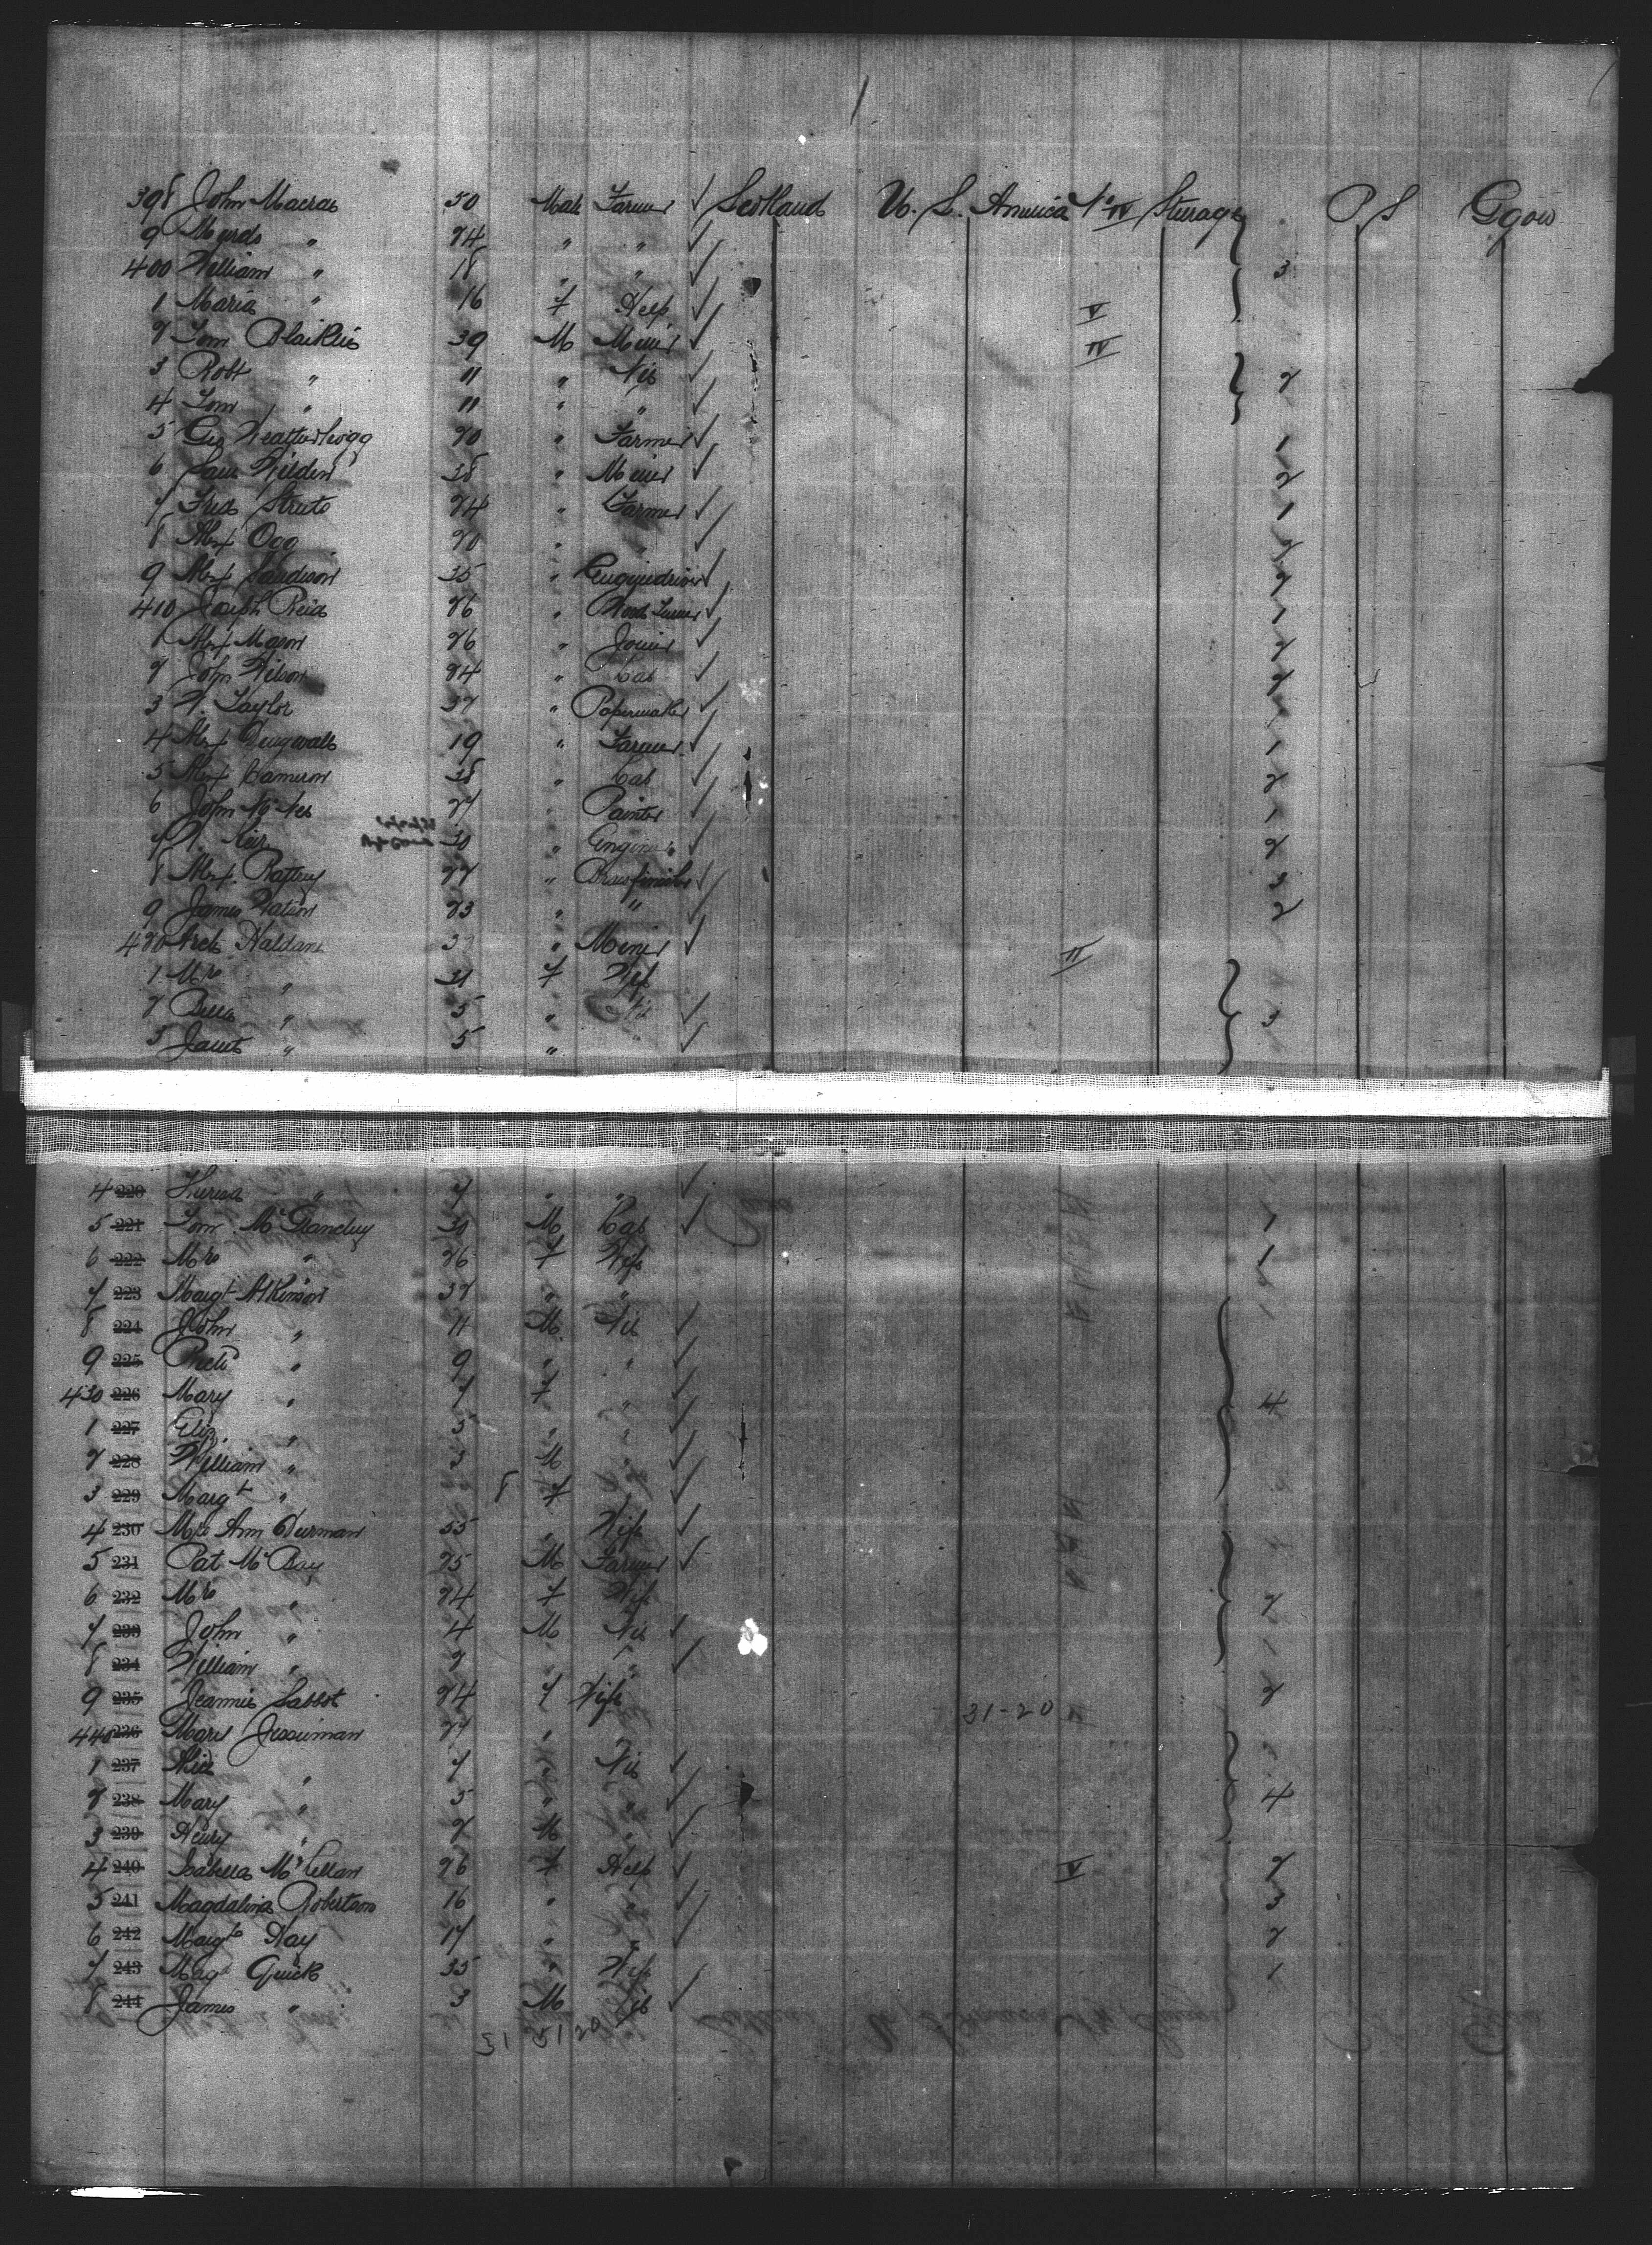 398 John Macrae 50 Male Farmer ✓ Scotland U. S. America No IV Steerage P S Ggow
9 Murdo " 24 " " ✓
400 William " 18 " " ✓ 3
1 Maria " 16 F Help ✓ V
2 Tom Blaikie 39 M Miner ✓ IV
3 Robt " 11 " Nil ✓ 2
4 Tom " 11 " " ✓
5 Geo Weatherhogg 20 " Farmer ✓ 1
6 38 " Miner ✓ 2
7 Fred 24 " Farmer ✓ 1
8 Alex 20 " " ✓ 2
9 Alex Sandison 35 " ✓ 2
410 Joseph Reid 26 " Wood Turner ✓ 1
1 Alex Mason 26 " Joiner ✓ 2
2 John Wilson 24 " Lab ✓ 2
3 W. Taylor 37 " Papermaker ✓ 1
4 Alex Dingwall 19 " Farmer ✓ 1
5 Alex Cameron 38 " Lab ✓ 2
6 John 27 " Painter ✓ 1
7 30 " Engineer ✓ 2
8 Alex. Raffrey 22 " Brassfinisher ✓ 3
9 James Watson 23 " " ✓ 2
420 Arch Haldane 37 " Miner ✓ IV
1 Mrs " 31 F Wife
2 Bella " 5 " Nil ✓ 3
3 Janet " 5 " " ✓
4 220 " 7 " " ✓
5 221 Tom McGlanchy 30 M Lab ✓ 1
6 222 Mrs " 26 F Wife 1
7 223 Margt Atkinson 37 " "
8 224 John " 11 M Nil ✓
9 225 " 9 " " ✓
430 226 Mary " 7 F " ✓ 4
1 227 Eliz. " 5 " " ✓
2 228 William " 3 M " ✓
3 229 Margt " 8 F ✓
4 230 Mrs Ann Durman 55 " Wife ✓
5 231 Pat McBay 25 M Farmer ✓
6 232 Mrs " 24 F Wife 2
7 233 John " 4 M Nil ✓
8 234 William " 2 " " ✓
9 235 Jeannie 24 F Wife 2
31-20
440 236 Mary Jessiman 27 " "
1 237 " 7 " Nil ✓
2 238 Mary " 5 " " ✓ 4
3 239 Henry " 2 M " ✓
4 240 Isabella McLellan 26 F Help ✓ V 2
5 241 Magdalina Robertson 16 " " ✓ 3
6 242 Margt Hay 17 " " ✓ 2
7 243 Magt Quick 35 " Wife 1
8 244 James " 3 M Nil ✓
31 31 20